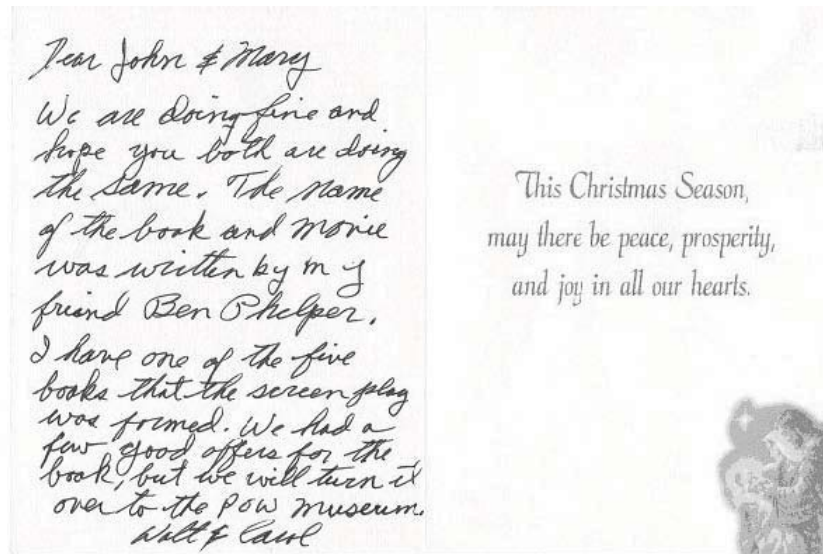 Dear John & Mary
We are doing fine and
hope you both are doing
the same. The name
of the book and movie
was written by my
friend Ben Phelper.
I have one of the five
books that the screen play
was formed. We had a
few good offers for the
book, but we will turn it
over to the POW museum.
Walt & Carol
This Christmas Season,
may there be peace, prosperity,
and joy in all our hearts.